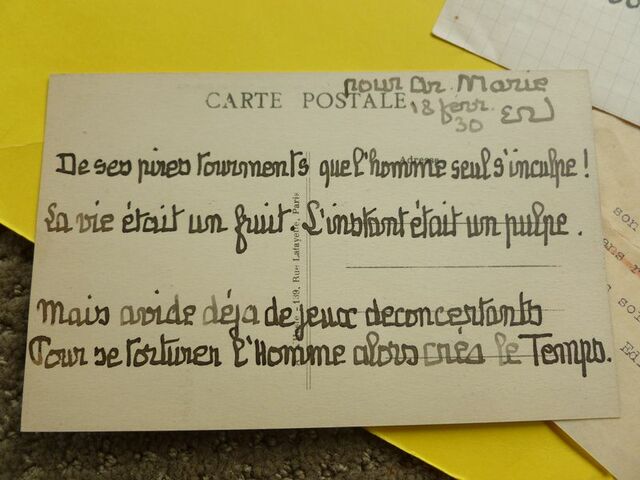 pour Dr. Marie
CARTE POSTALE
18 fevr.
30
Adresse
De ses pires tourments que l'homme seul s'inculpe !
La vie était un fruit. L'instant était un pulpe.
Mais avide déja de jeux deconcertants
Pour se torturer l'Homme alors créa le Temps.
139, Rue Lafayette, Paris
son